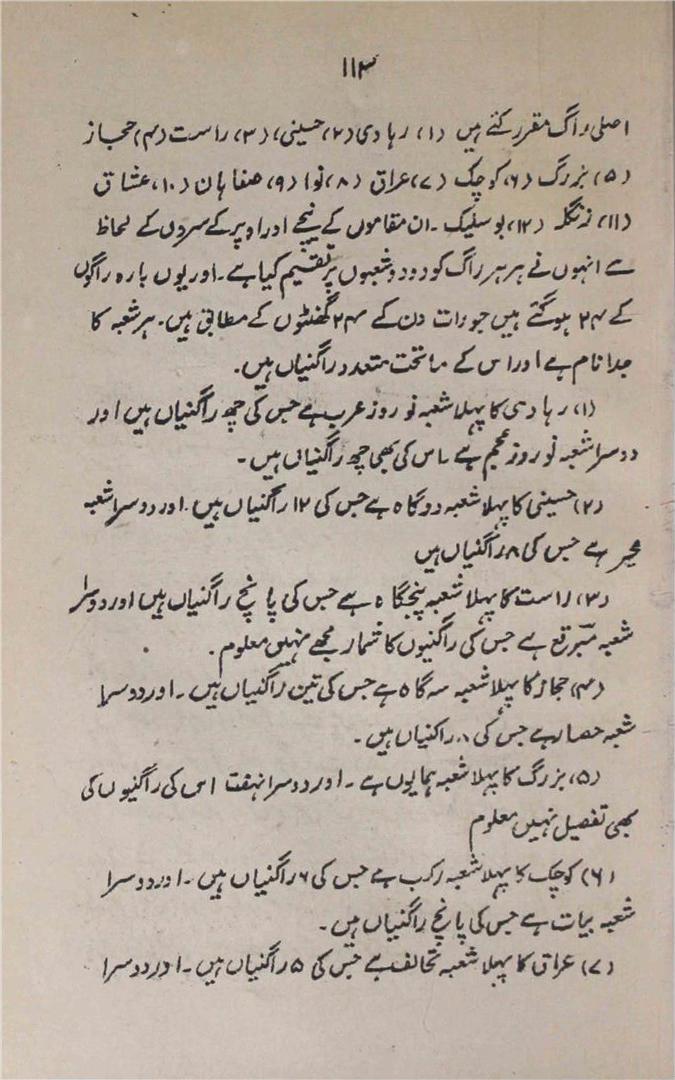 ۱۱۳
اصلی راگ مقرر کئے ہیں (۱) رہادی (۲) حسینی (۳) راست (۴) حجاز
(۵) بزرگ (۶) کوچک (۷) عراق (۸) نوا (۹) صفاہان (۱۰) عشاق
(۱۱) زنگلہ (۱۲) بوسلیک ۔ ان مقاموں کے نیچے اور اوپر کے سردں کے لحاظ
سے انہوں نے ہر ہر راگ کو دو دو شعبوں پر تقسیم کیا ہے۔ اور یوں بارہ راگوں
کے ۲۴ ہو گئے ہیں جو رات دن کے ۲۴ گھنٹوں کے مطابق ہیں۔ ہر شعبہ کا
جدا نام ہے اور اس کے ماتحت متعدد راگنیاں ہیں۔
(۱) رہادی کا پہلا شعبہ نوروز عرب ہے جس کی چھ راگنیاں ہیں اور
دوسرا شعبہ نوروز عجم ہے ۔ اس کی بھی چھ راگنیاں ہیں ۔
(۲) حسینی کا پہلا شعبہ دوگاہ ہے جس کی ۱۲ راگنیاں ہیں ۔ اور دوسرا شعبہ
محیر ہے جس کی ۸ راگنیاں ہیں
(۳) راست کا پہلا شعبہ پنجگاہ ہے جس کی پانچ راگنیاں ہیں اور دوسرا
شعبہ مبرقع ہے جس کی راگنیوں کا شمار مجھے نہیں معلوم ۔
(۴) حجاز کا پہلا شعبہ سہ گاہ ہے جس کی تین راگنیاں ہیں ۔ اور دوسرا
شعبہ حصار ہے جس کی ۸ راگنیاں ہیں ۔
(۵) بزرگ کا پہلا شعبہ ہمایوں ہے ۔ اور دوسرا نہفت اس کی راگنیوں کی
بھی تفصیل نہیں معلوم
(۶) کوچک کا پہلا شعبہ رکب ہے جس کی ۶ راگنیاں ہیں ۔ اور دوسرا
شعبہ بیات ہے جس کی پانچ راگنیاں ہیں ۔
(۷) عراق کا پہلا شعبہ تخالف ہے جس کی ۵ راگنیاں ہیں ۔ اور دوسرا